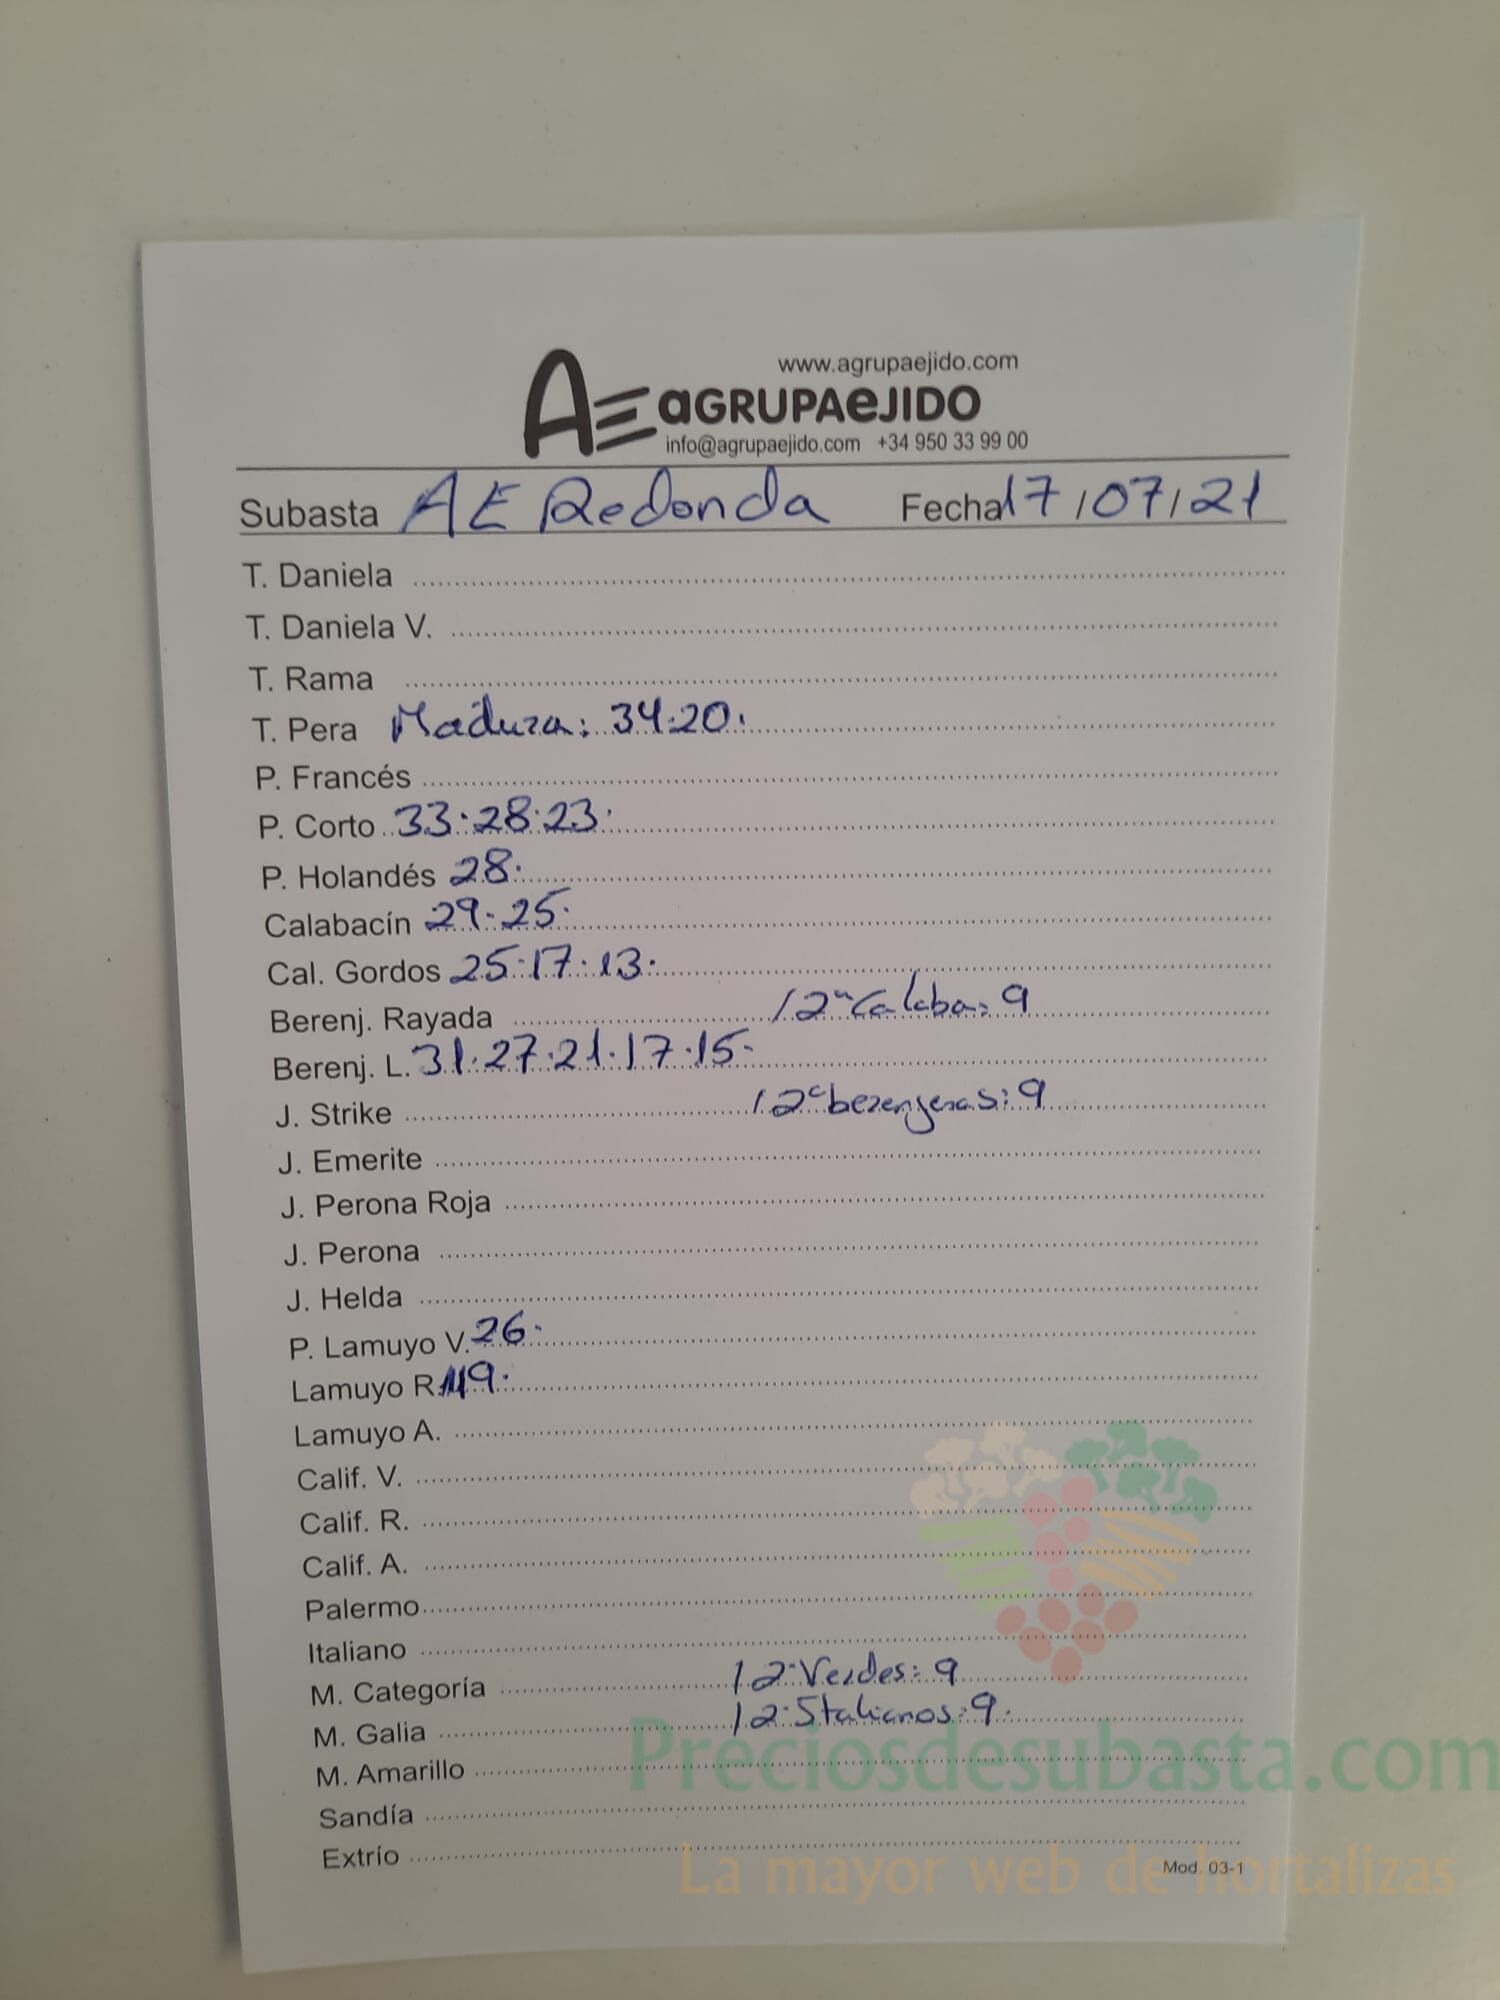 www.agrupaejido.com
AE aGRUPAeJIDO
info@agrupaejido.com +34 950 33 99 00
Subasta AE Redonda Fecha 17/07/21
T. Daniela
T. Daniela V.
T. Rama
T. Pera Madura: 34.20.
P. Francés
P. Corto 33.28.23.
P. Holandés 28.
Calabacín 29.25.
Cal. Gordos 25.17.13.
Berenj. Rayada /2ª Calaba: 9
Berenj. L. 31.27.21.17.15.
J. Strike /2ª berenjenas: 9
J. Emerite
J. Perona Roja
J. Perona
J. Helda
P. Lamuyo V. 26.
Lamuyo R. 19.
Lamuyo A.
Calif. V.
Calif. R.
Calif. A.
Palermo
Italiano
M. Categoría /2ª Verdes: 9
M. Galia /2ª Italianos: 9.
M. Amarillo
Sandía
Extrío
Mod. 03-1
Preciosdesubasta.com
La mayor web de hortalizas